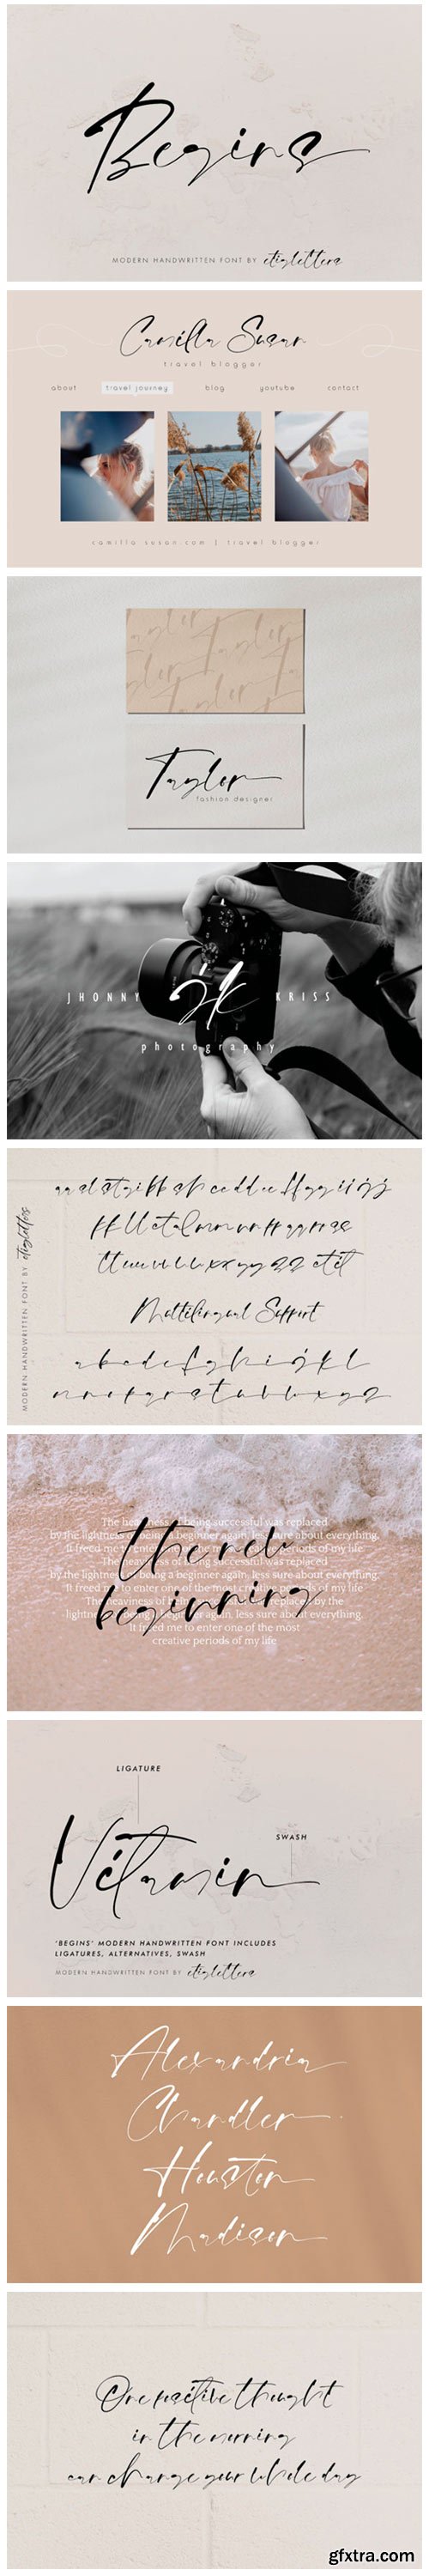 Begins
MODERN HANDWRITTEN FONT BY etigletters
Camilla Susan
travel blogger
about travel journey blog youtube contact
camilla susan.com | travel blogger
Taylor Taylor
Taylor
Taylor
Taylor
fashion designer
JHONNY JK KRISS
photography
MODERN HANDWRITTEN FONT BY etigletters
Multilingual Support
a b c d e f g h i j k l
m n o p q r s t u v w x y z
The heaviness of being successful was replaced
by the lightness of being a beginner again, less sure about everything.
It freed me to enter one of the most creative periods of my life
The heaviness of being successful was replaced
by the lightness of being a beginner again, less sure about everything.
It freed me to enter one of the most creative periods of my life
The heaviness of being successful was replaced by the
lightness of being a beginner again, less sure about everything.
It freed me to enter one of the most
creative periods of my life
the new
beginning
LIGATURE
SWASH
Vitamin
"BEGINS" MODERN HANDWRITTEN FONT INCLUDES
LIGATURES, ALTERNATIVES, SWASH
MODERN HANDWRITTEN FONT BY etigletters
Alexandria
Chandler
Houston
Madison
One positive thought
in the morning
can change your whole day
gfxtra.com